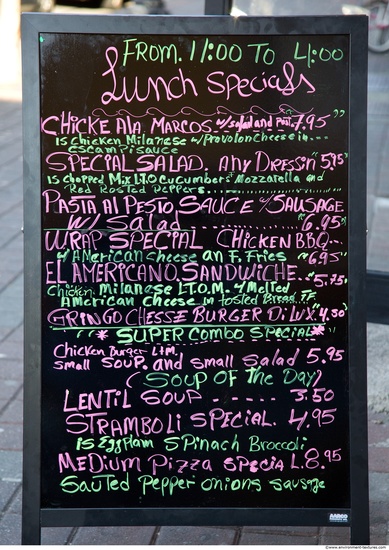 FROM. 11:00 TO 4:00
Lunch Specials
CHICKE Ala. MARCOS w/salad and Past. 7.95"
is chicken Milanese w/Provolon cheese in...
SPECIAL SALAD. any Dressin" 5.95"
is chopped Mix L.T.O cucumbers Mozzarella and
Red Rosted Peppers
PASTA Al PESTO SAUCE w/SAUSAGE
w/ Salad "6.95"
WRAP SPECIAL Chicken BBQ
w/ American cheese an F. Fries "6.95"
EL AMERICANO SANDWICHE "5.75"
Chicken Milanese L.T.O.M. & Melted
American cheese in tosted Bread. F.F
GRINGO CHESSE BURGER Di LUX. 4.50"
"* SUPER COMBO SPECIAL *
Chicken Burger L.t.m.
small Soup. and small Salad 5.95
(SOUP OF The DAY)
LENTIL SOUP ------ 3.50
STRAMBOLI SPECIAL. 4.95
is Eggplam Spinach Broccoli
MEDIUM Pizza SPECIAL. 8.95
Sauted Pepper onions sausage
AARCO
©www.environment-textures.com